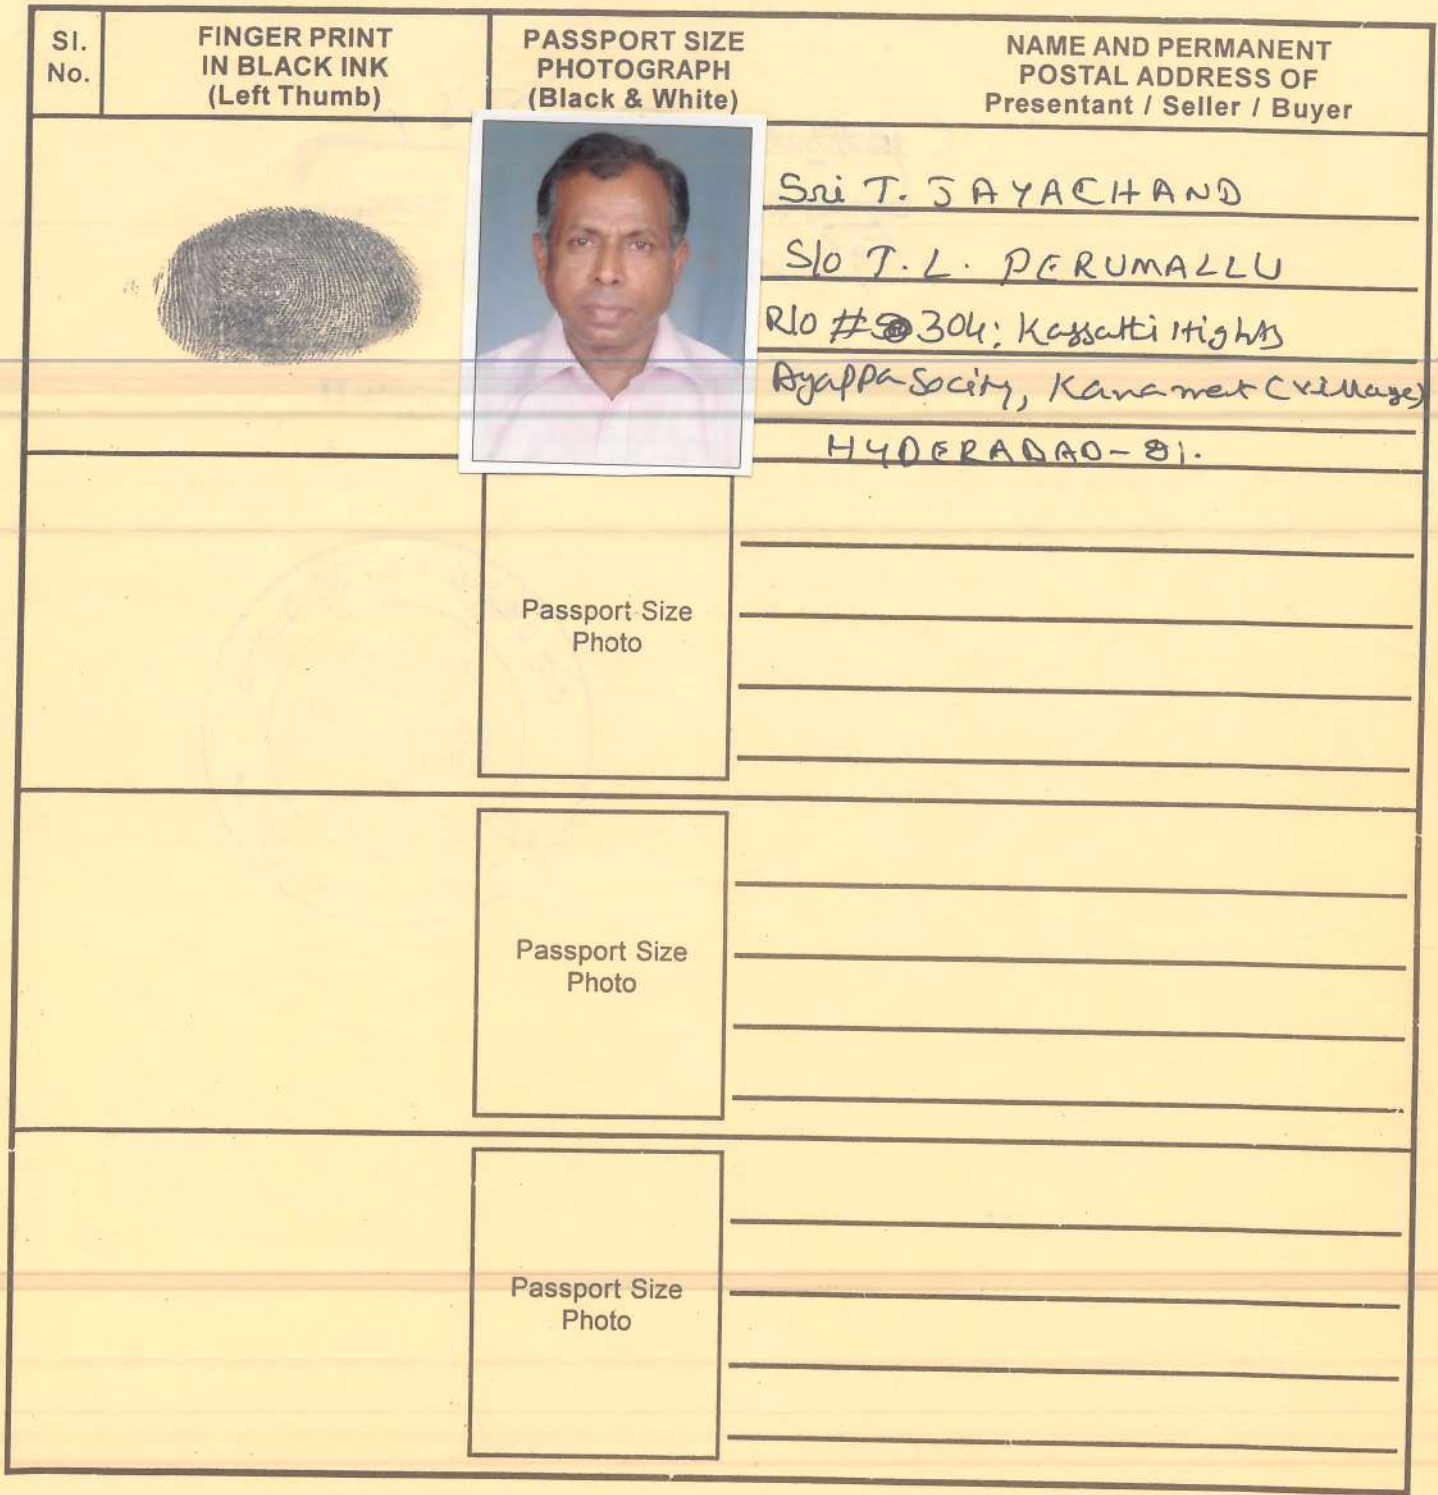 Sl.
No.
FINGER PRINT
IN BLACK INK
(Left Thumb)
PASSPORT SIZE
PHOTOGRAPH
(Black & White)
NAME AND PERMANENT
POSTAL ADDRESS OF
Presentant / Seller / Buyer
Sri T. JAYACHAND
S/o T. L. PERUMALLU
R/o # 304; Kassatti Hights
Ayappa Socity, Kanamet (village)
HYDERABAD - 81.
Passport Size
Photo
Passport Size
Photo
Passport Size
Photo